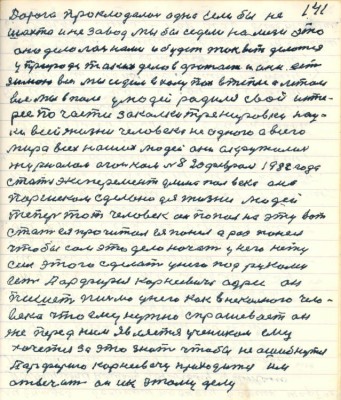 141
Дорога прокладалась одна если бы не
шахта и не завод мы бы сидели на мели это
оно делалось нами и будет так вот делаться
у природы такая дело в драках и она есть
зимою все мы сидим в холу так в тепле а летом
все мы в поле у людей родился свой инте-
рес по части закалки тренировки нау-
ки всей жизни человека не одного а всего
мира всех наших людей они окружились
журналом огоньком №8 20 февраля 1982 года
статья эксперимент длиною пол века она
Паршеком сделана для жизни людей
теперь тот человек он попал на эту вот
статью прочитал ее понял а раз понял
чтобы сам это дело начать у него нету
сил этого сделать у него под руками
есть Парфирия Корнеевича адрес он
пишет письмо у него как в некого чело-
века что ему нужно спрашивает он
же перед ним является учеником ему
хочется за это знать чтобы не ошибиться
Парфирию Корнеевичу приходится им
отвечать он их этому делу